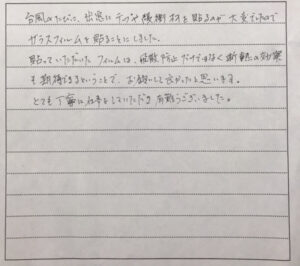 台風のたびに、出窓にテープや緩衝材を貼るのが大変だったので
ガラスフィルムを貼ることにしました。
貼っていただいたフィルムは、飛散防止だけではなく断熱の効果
も期待できるということで、お願いして良かったと思います。
とても丁寧に仕事をしていただき有難うございました。